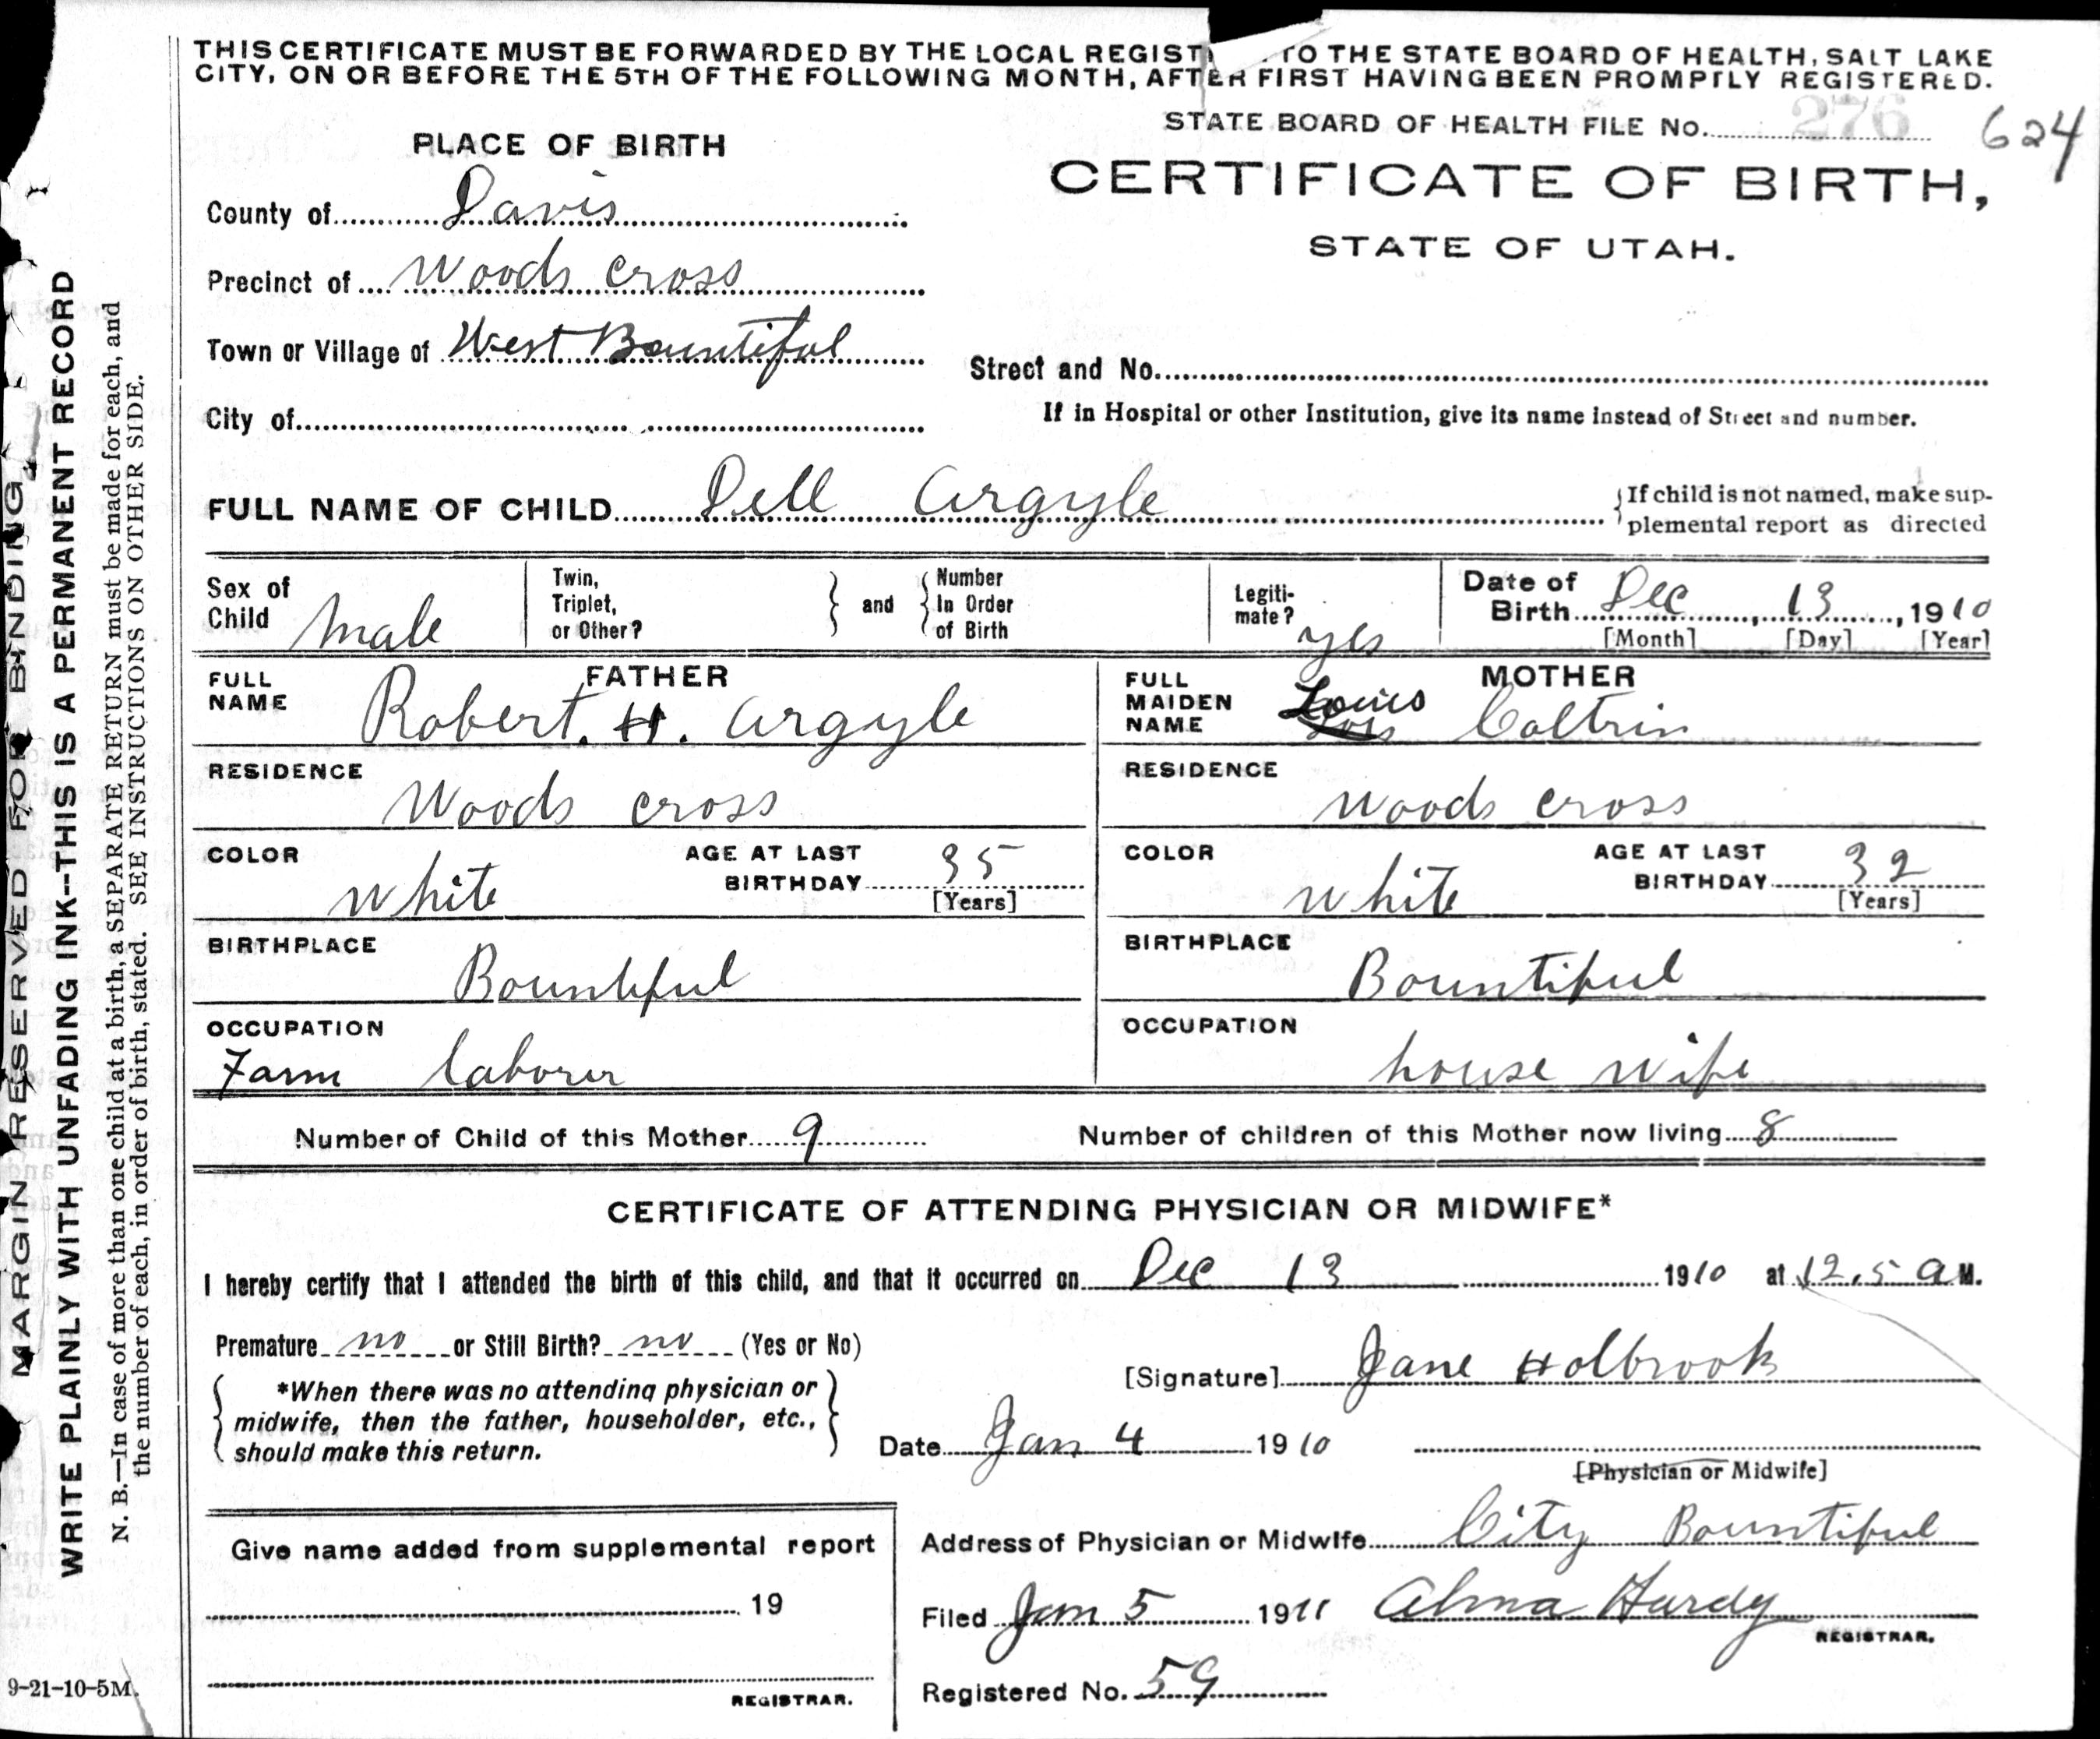 THIS CERTIFICATE MUST BE FORWARDED BY THE LOCAL REGIST TO THE STATE BOARD OF HEALTH, SALT LAKE
CITY, ON OR BEFORE THE 5TH OF THE FOLLOWING MONTH, AFTER FIRST HAVING BEEN PROMPTLY REGISTERED.
STATE BOARD OF HEALTH FILE No. 276 624
PLACE OF BIRTH
CERTIFICATE OF BIRTH,
STATE OF UTAH.
County of Davis
Precinct of Woods Cross
Town or Village of West Bountiful
Street and No.
City of
If in Hospital or other Institution, give its name instead of Street and number.
FULL NAME OF CHILD Dell Argyle
{If child is not named, make sup-
plemental report as directed
Sex of Child male
Twin, Triplet, or Other? } and { Number In Order of Birth
Legiti-mate? yes
Date of Birth Dec, 13, 1910
[Month] [Day] [Year]
FATHER
FULL NAME Robert. H. Argyle
MOTHER
FULL MAIDEN NAME Louies Coltrin
RESIDENCE Woods Cross
RESIDENCE Woods Cross
COLOR White AGE AT LAST BIRTHDAY 35 [Years]
COLOR White AGE AT LAST BIRTHDAY 32 [Years]
BIRTHPLACE Bountiful
BIRTHPLACE Bountiful
OCCUPATION Farm laborer
OCCUPATION house wife
Number of Child of this Mother 9 Number of children of this Mother now living 8
CERTIFICATE OF ATTENDING PHYSICIAN OR MIDWIFE*
I hereby certify that I attended the birth of this child, and that it occurred on Dec 13 1910 at 12.5 a M.
Premature no or Still Birth? no (Yes or No)
[Signature] Jane Holbrook
{ *When there was no attending physician or
midwife, then the father, householder, etc.,
should make this return. }
Date Jan 4 1910
[Physician or Midwife]
Give name added from supplemental report
19
REGISTRAR.
Address of Physician or Midwife City Bountiful
Filed Jan 5 1911 Alma Hardy
REGISTRAR.
Registered No. 59
9-21-10-5M.
MARGIN RESERVED FOR BINDING
WRITE PLAINLY WITH UNFADING INK--THIS IS A PERMANENT RECORD
N. B.—In case of more than one child at a birth, a SEPARATE RETURN must be made for each, and
the number of each, in order of birth, stated. SEE INSTRUCTIONS ON OTHER SIDE.